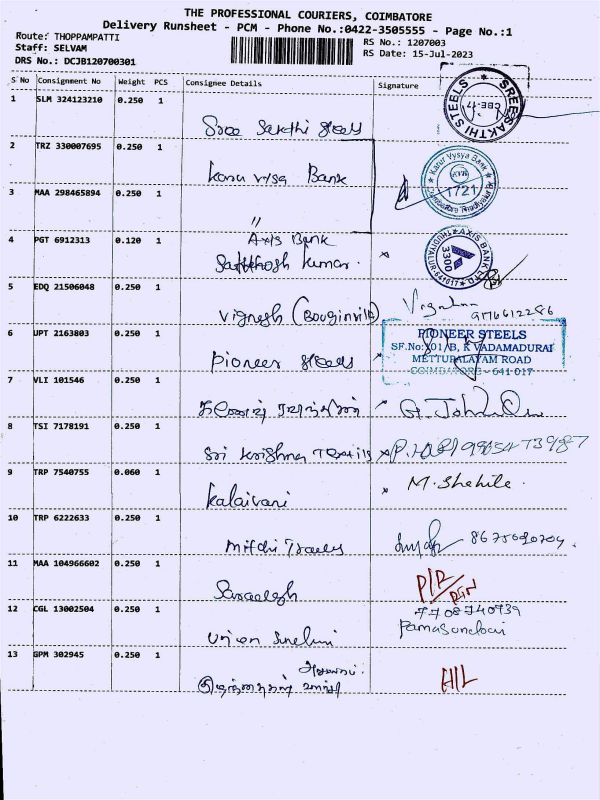 THE PROFESSIONAL COURIERS, COIMBATORE
Delivery Runsheet - PCM - Phone No.:0422-3505555 - Page No.:1
Route: THOPPAMPATTI
RS No.: 1207003
Staff: SELVAM
RS Date: 15-Jul-2023
DRS No.: DCJB120700301
S No Consignment No Weight PCS Consignee Details Signature
1 SLM 324123210 0.250 1
Sree Sakthi Steels
SREE SAKTHI STEELS
CBE-17
2 TRZ 330007695 0.250 1
Karur Vysa Bank
Karur Vysya Bank
1721
3 MAA 298465894 0.250 1
"
4 PGT 6912313 0.120 1
Axis Bank
Santhosh Kumar
AXIS BANK LTD.
THUDIYALUR-641017
3300
5 EDQ 21506048 0.250 1
Vignesh (Bouginvilla)
6 UPT 2163803 0.250 1
Pioneer Steels
PIONEER STEELS
SF.No:101/B, K VADAMADURAI
METTUPALAYAM ROAD
COIMBATORE - 641 017
7 VLI 101546 0.250 1
G. John
8 TSI 7178191 0.250 1
Sri Krishna Textils
9 TRP 7540755 0.060 1
Kalaivani
M. Shakila
10 TRP 6222633 0.250 1
11 MAA 104966602 0.250 1
12 CGL 13002504 0.250 1
7708740939
Union
13 GPM 302945 0.250 1
H/L